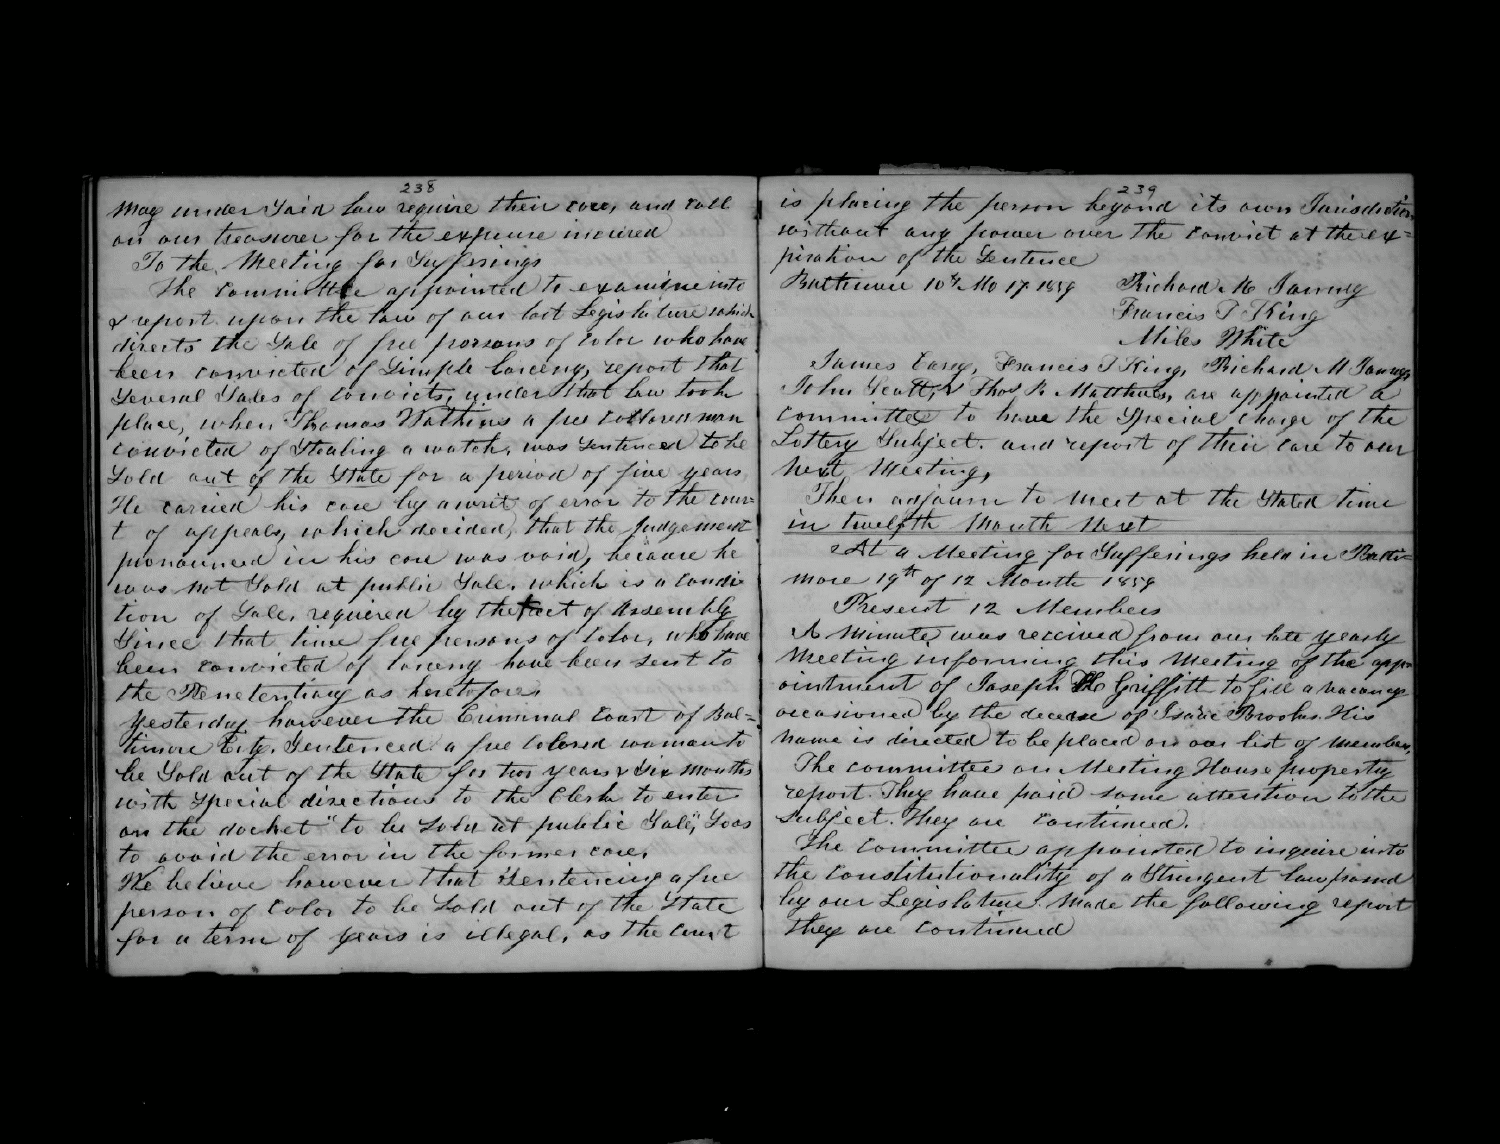 238
may under Said law require their care, and call
on our treasurer for the expense incured
To the Meeting for Sufferings
The committee appointed to examine into
& report upon the law of our last Legislature which
directs the Sale of free persons of Color who have
been convicted of Simple larceny, report that
Several Sales of convicts, under that law took
place, when Thomas Watkins a free collored man
convicted of Stealing a watch, was Sentenced to be
Sold out of the State for a period of five years,
He carried his case by a writ of error to the cour=
t of appeals, which decided, that the judgement
pronounced in his case was void, because he
was not Sold at public Sale, which is a condi
tion of Sale, required by the act of Assembly
Since that time free persons of Color, who have
been convicted of larceny have been sent to
the Penetentiary as heretofore,
Yesterday however the Criminal Court of Bal=
timore City, Sentenced a free Colored woman to
be Sold out of the State for two years & Six months
with Special directions to the Clerk to enter
on the docket "to be Sold at public Sale", So as
to avoid the error in the former case,
We believe however that Sentencing a free
person of Color to be Sold out of the State
for a term of years is illegal, as the Court
239
is placing the person beyond its own Jurisdiction
without any power over the convict at the ex=
piration of the Sentence
Baltimore 10th Mo 17 1859 Richard M Janney
Francis T King
Miles White
James Carey, Francis T King, Richard M Janney
John Scott, & Thos R Matthews, are appointed a
committee to have the Special charge of the
Lottery Subject. and report of their care to our
next Meeting,
Then adjourn to meet at the Stated time
in twelfth Month Next
At a Meeting for Sufferings held in Balti=
more 19th of 12 Month 1859
Present 12 Members
A Minute was received from our late yearly
Meeting informing this Meeting of the app
ointment of Joseph Griffith to fill a vacancy
occasioned by the decease of Isaac Brooks. His
name is directed to be placed on our list of members,
The committee on Meeting House property
report They have paid some attention to the
Subject. They are continued.
The committee appointed to inquire into
the constitutionality of a Stringent law passed
by our Legislature Made the following report
they are continued